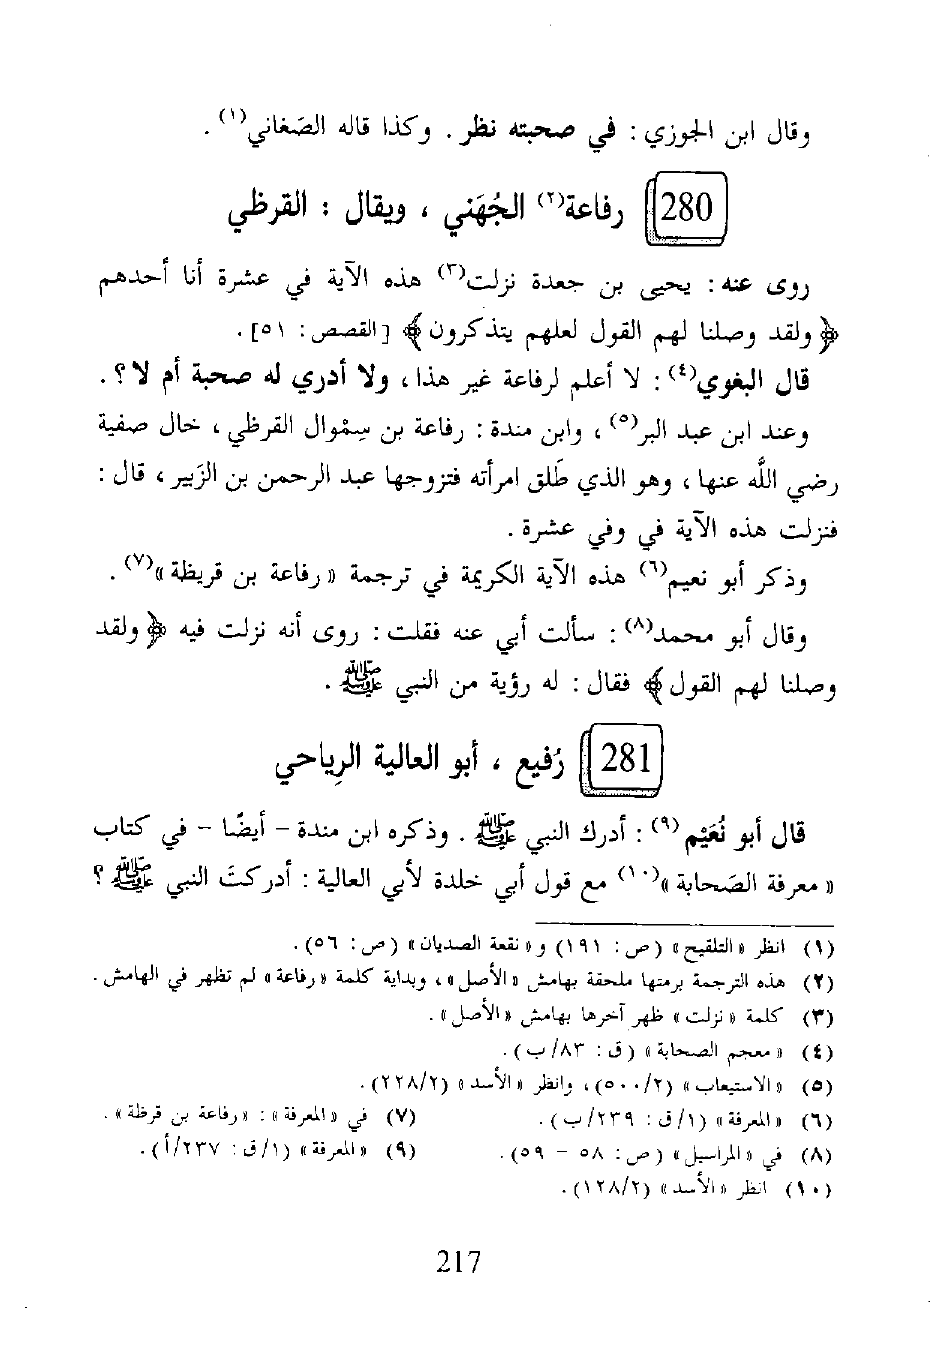 وقال ابن الجوزي : في صحبته نظر . وكذا قاله الصَغاني(١) .
280 رفاعة(٢) الجُهَني ، ويقال : القرظي
روى عنه : يحيى بن جعدة نزلت(٣) هذه الآية في عشرة أنا أحدهم
﴿ ولقد وصلنا لهم القول لعلهم يتذكرون ﴾ [القصص : ٥١] .
قال البغوي(٤) : لا أعلم لرفاعة غير هذا ، ولا أدري له صحبة أم لا ؟ .
وعند ابن عبد البر(٥) ، وابن مندة : رفاعة بن سِمْوال القرظي ، خال صفية
رضي اللَّه عنها ، وهو الذي طَلق امرأته فتزوجها عبد الرحمن بن الزَبير ، قال :
فنزلت هذه الآية في وفي عشرة .
وذكر أبو نعيم(٦) هذه الآية الكريمة في ترجمة « رفاعة بن قريظة »(٧) .
وقال أبو محمد(٨) : سألت أبي عنه فقلت : روى أنه نزلت فيه ﴿ ولقد
وصلنا لهم القول ﴾ فقال : له رؤية من النبي ﷺ .
281 رُفيع ، أبو العالية الرِياحي
قال أبو نُعَيْم(٩) : أدرك النبي ﷺ . وذكره ابن مندة - أيضًا - في كتاب
« معرفة الصَحابة »(١٠) مع قول أبي خلدة لأبي العالية : أدركتَ النبي ﷺ ؟
(١) انظر « التلقيح » (ص : ١٩١) و « نقعة الصديان » (ص : ٥٦) .
(٢) هذه الترجمة برمتها ملحقة بهامش « الأصل » ، وبداية كلمة « رفاعة » لم تظهر في الهامش .
(٣) كلمة « نزلت » ظهر آخرها بهامش « الأصل » .
(٤) « معجم الصحابة » (ق : ٨٣/ ب) .
(٥) « الاستيعاب » (٢/ ٥٠٠) ، وانظر « الأسد » (٢/ ٢٢٨) .
(٦) « المعرفة » (١/ ق : ٢٣٩/ ب) . (٧) في « المعرفة » : « رفاعة بن قرظة » .
(٨) في « المراسيل » (ص : ٥٨ - ٥٩) . (٩) « المعرفة » (١/ ق : ٢٣٧/ أ) .
(١٠) انظر « الأسد » (٢/ ١٢٨) .
217